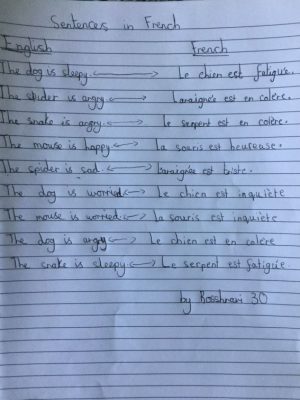 Sentences in French
English French
The dog is sleepy. Le chien est fatigué.
The spider is angry L'araignée est en colère.
The snake is angry. Le serpent est en colère.
The mouse is happy. la souris est heureuse.
The spider is sad. L'araignée est triste.
The dog is worried Le chien est inquiète
The mouse is worried la souris est inquiète
The dog is angry Le chien est en colère
The snake is sleepy Le serpent est fatiguée
by 3O